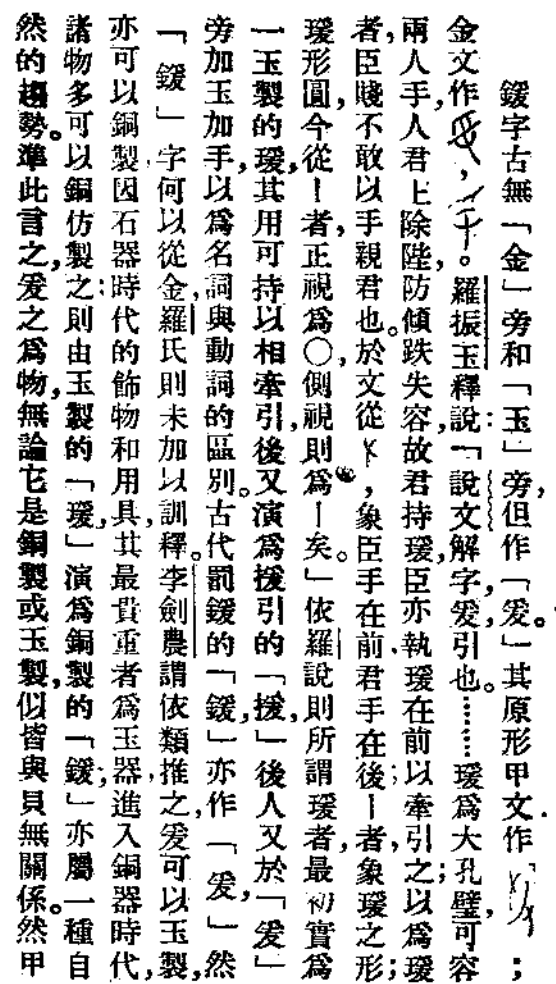 鍰字古無「金」旁和「玉」旁,但作「爰。」其原形甲文作 ;
金文作 , 。羅振玉釋說:「說文解字,爰,引也。……瑗爲大孔璧,可容
兩人手,人君上除陛,防傾跌失容,故君持瑗,臣亦執瑗在前以牽引之;以爲瑗
者,臣賤不敢以手親君也。於文從 ,象臣手在前,君手在後;丨者,象瑗之形;
瑗形圓,今從丨者,正視爲〇,側視則爲丨矣。」依羅說,則所謂瑗者,最初實爲
一玉製的瑗,其用可持以相牽引,後又演爲援引的「援,」後人又於「爰」
旁加玉加手,以爲名詞與動詞的區別。古代罰鍰的「鍰,」亦作「爰,」然
「鍰」字何以從金,羅氏則未加以訓釋。李劍農謂依類推之,爰可以玉製,
亦可以銅製,因石器時代的飾物和用具,其最貴重者爲玉器,進入銅器時代,
諸物多可以銅仿製之;則由玉製的「瑗,」演爲銅製的「鍰;」亦屬一種自
然的趨勢。準此言之,爰之爲物,無論它是銅製或玉製,似皆與貝無關係。然甲